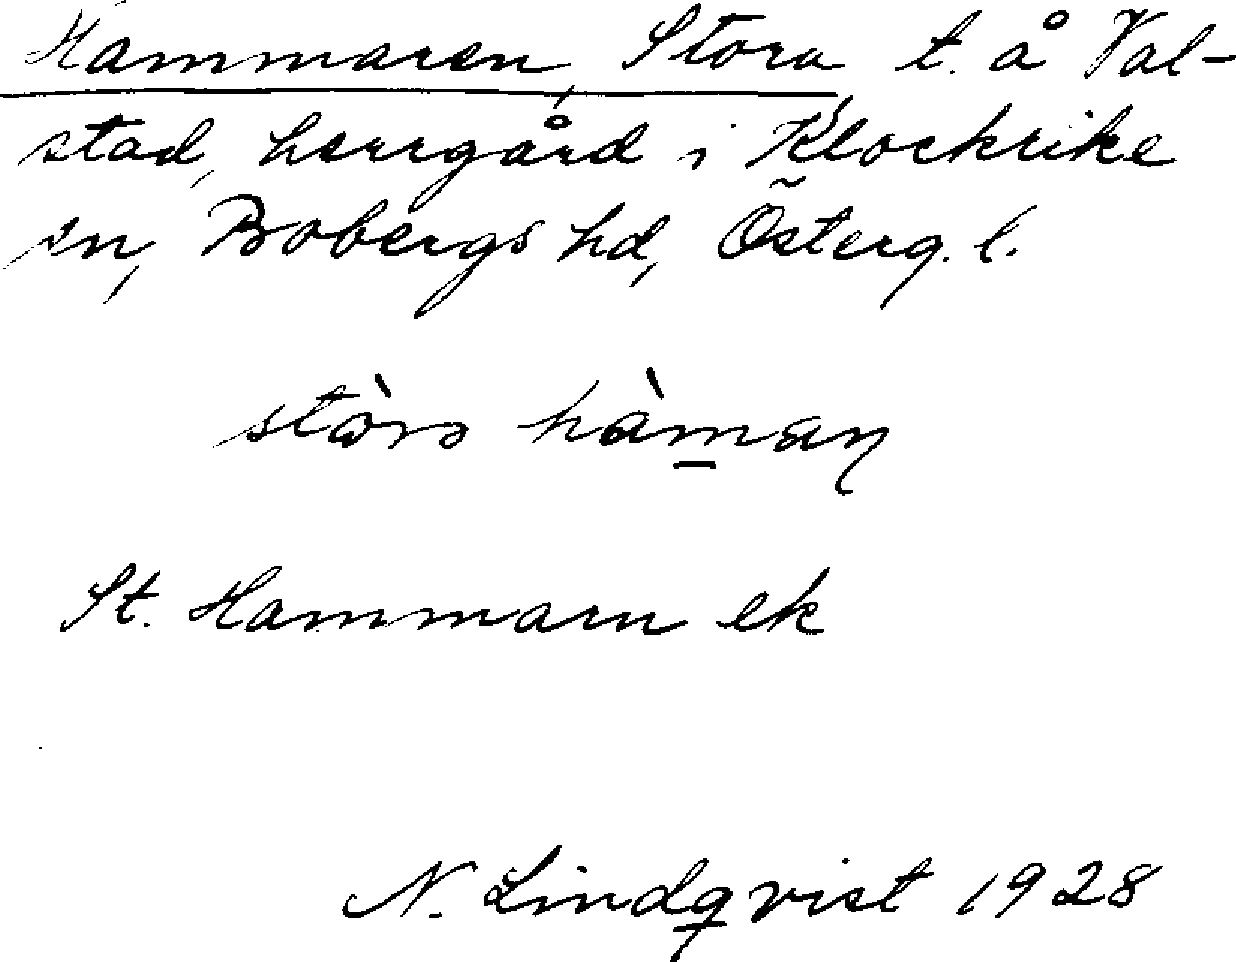 Hammaren, Stora t. å Val-
stad, herrgård i Klockrike
sn, Bobergs hd, Österg. l.
stòro hàman
St. Hammarn ek
N. Lindqvist 1928